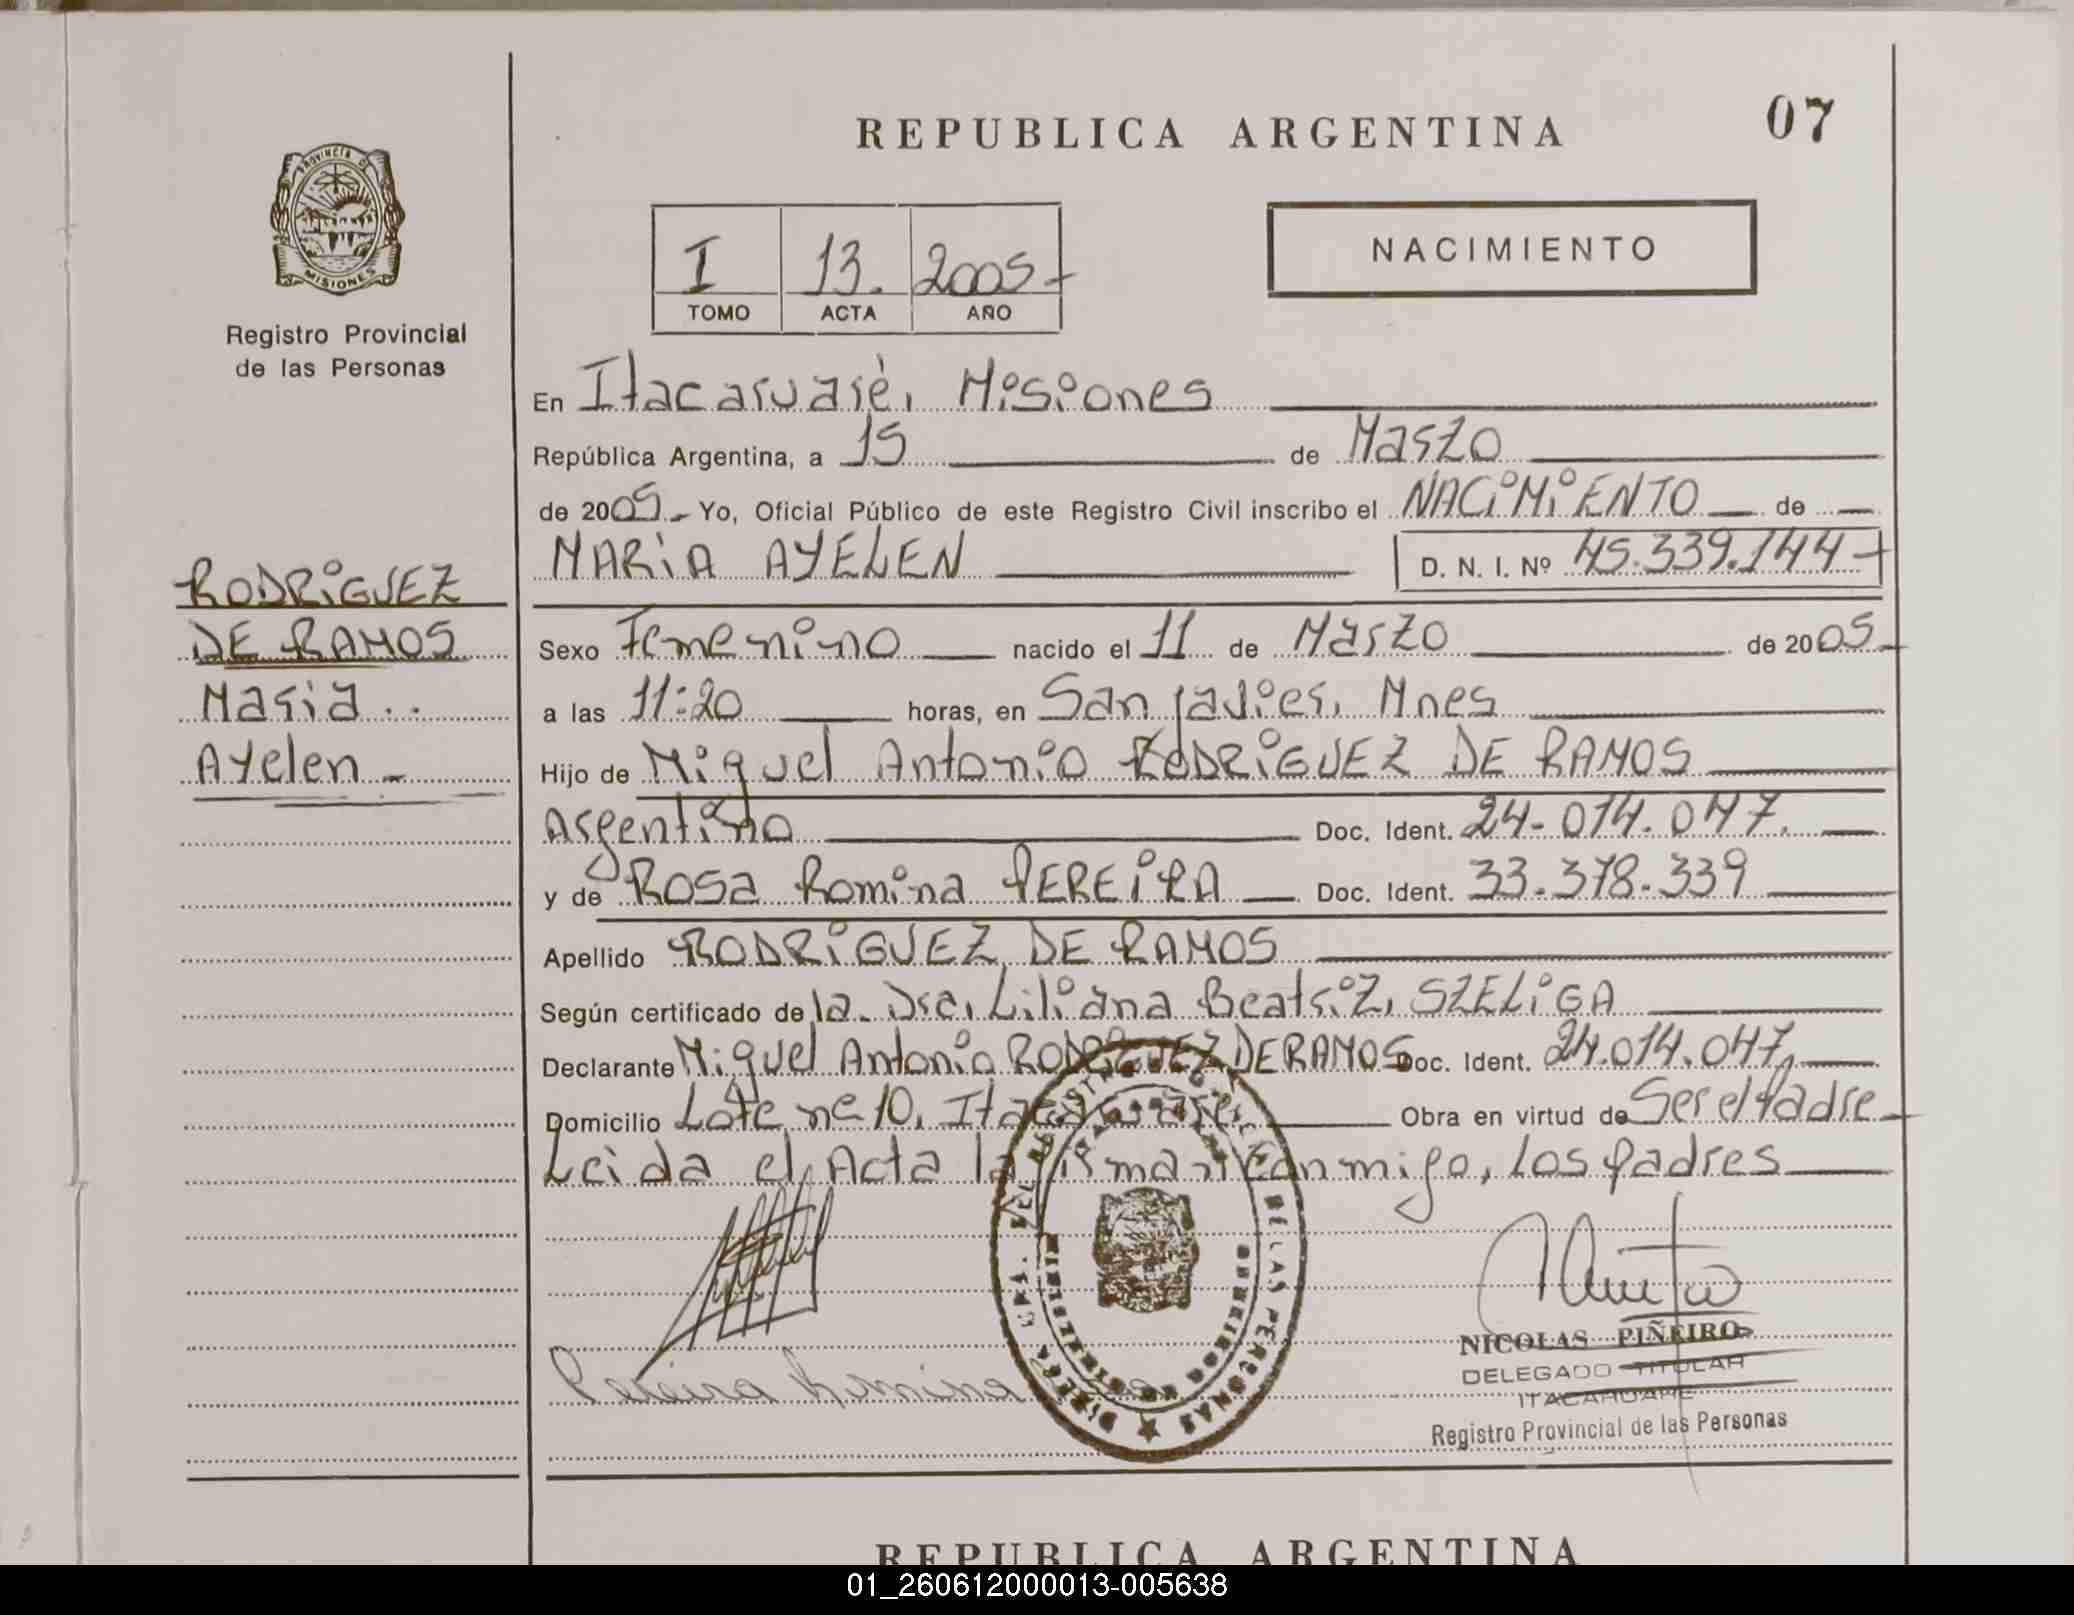 REPUBLICA ARGENTINA
07
PROVINCIA DE
MISIONES
Registro Provincial
de las Personas
I 13. 2005-
TOMO ACTA AÑO
NACIMIENTO
En Itacaruaré, Misiones
República Argentina, a 15 de Marzo
de 2005.- Yo, Oficial Público de este Registro Civil inscribo el NACIMIENTO de
MARIA AYELEN D. N. I. Nº 45.339.144-
RODRIGUEZ
DE RAMOS
Maria..
Ayelen-
Sexo Femenino nacido el 11 de Marzo de 2005-
a las 11:20 horas, en San javier, Mnes
Hijo de Miguel Antonio RODRIGUEZ DE RAMOS
Argentino Doc. Ident. 24-014.047.
y de Rosa Romina PEREIRA Doc. Ident. 33.378.339
Apellido RODRIGUEZ DE RAMOS
Según certificado de la Dra. Liliana Beatriz, SZELIGA
Declarante Miguel Antonio RODRIGUEZ DE RAMOS Doc. Ident. 24.014.047,
Domicilio Lote nº 10, Itacaruaré, Obra en virtud de Ser el Padre
Leida el Acta la firman conmigo, Los padres
Pereira Romina
NICOLAS PIÑEIRO
DELEGADO TITULAR
ITACARUARE
Registro Provincial de las Personas
REPUBLICA ARGENTINA
01_260612000013-005638